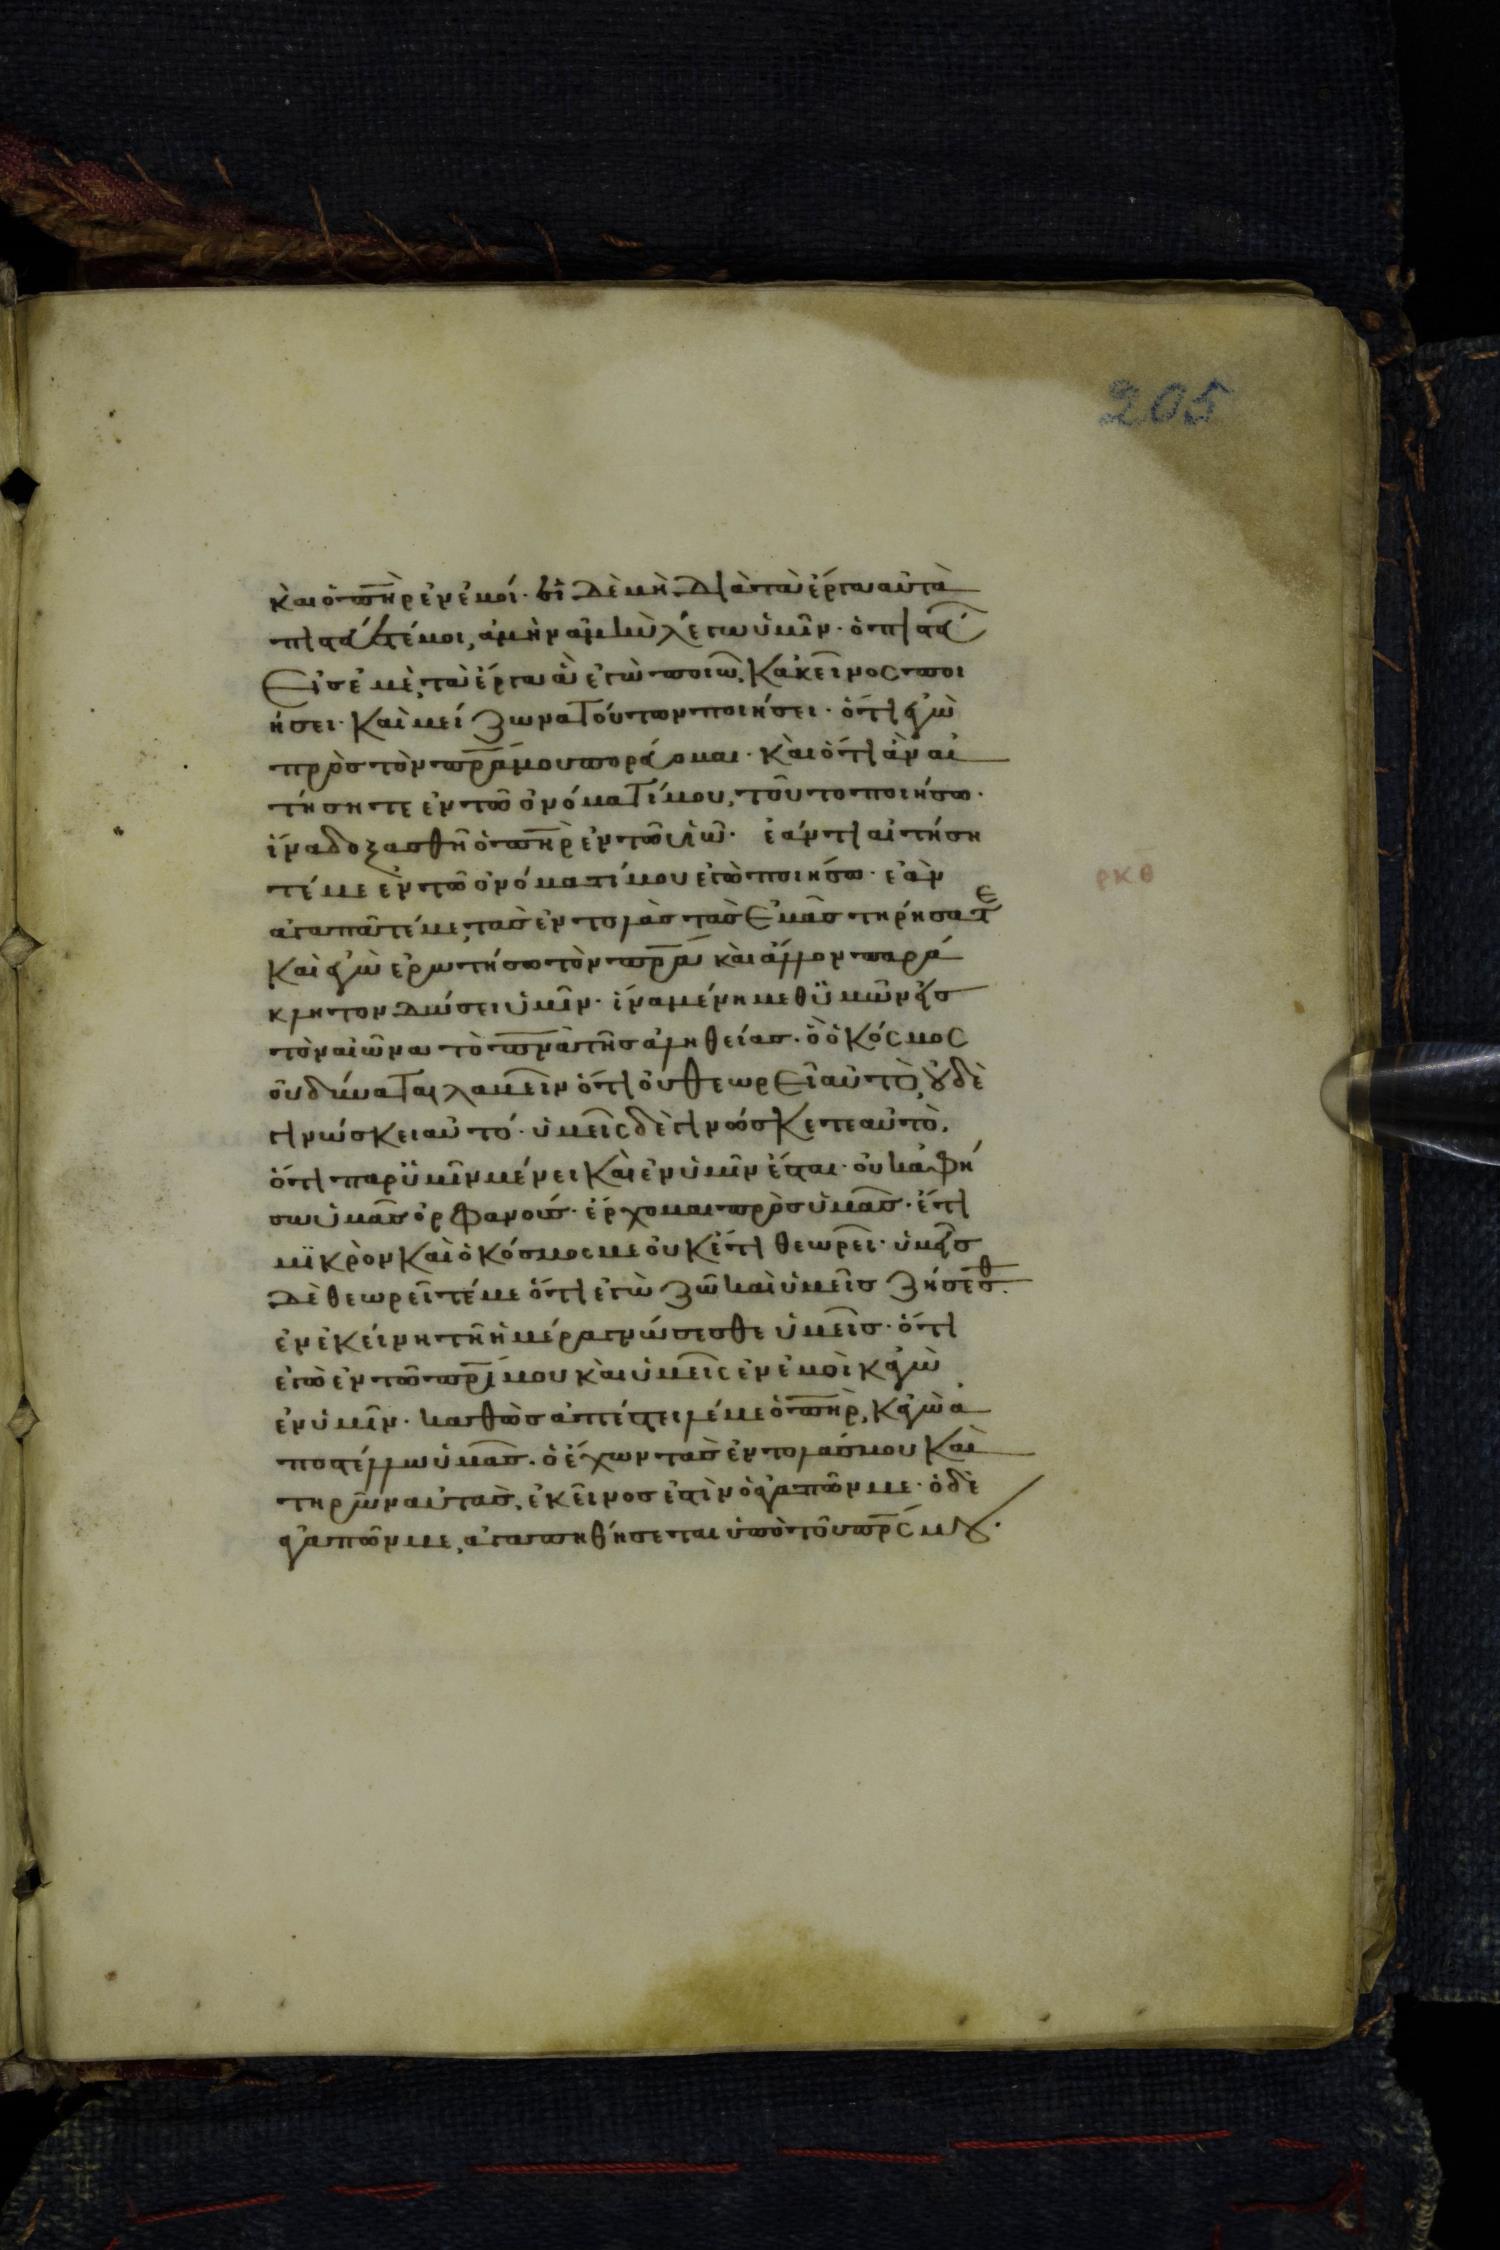 205
καὶ ὁ πὴρ ἐν ἐμοί· εἰ δὲ μὴ διὰ τὰ ἔργα αὐτὰ
πιστεύετέ μοι, ἀμὴν ἀμὴν λέγω ὑμῖν· ὁ πιστεύων
εἰς ἐμὲ, τὰ ἔργα ἃ ἐγὼ ποιῶ, κἀκεῖνος ποι
ήσει· καὶ μείζωνα τούτων ποιήσει· ὅτι ἐγὼ
πρὸς τὸν πρά μου πορεύομαι· καὶ ὅτι ἂν αἰ
τήσητε ἐν τῶ ὀνόματί μου, τοῦτο ποιήσω·
ἵνα δοξασθῆ ὁ πὴρ ἐν τῶ υἱῶ· ἐάν τι αἰτήση
τέ με ἐν τῶ ὀνόματί μου ἐγὼ ποιήσω· ἐὰν
ρκθ
ἀγαπᾶτέ με, τὰς ἐντολὰς τὰς ἐμὰς τηρήσατε
καὶ ἐγὼ ἐρωτήσω τὸν πρά καὶ ἄλλον παρά
κλητον δώσει ὑμῖν· ἵνα μένη μεθ ὑμῶν εἰς
τὸν αἰῶνα τὸ πνα τῆς ἀληθείας· ὃ ὁ κόσμος
οὐ δύναται λαβεῖν ὅτι οὐ θεωρεῖ αὐτὸ, οὐδὲ
γινώσκει αὐτό· ὑμεῖς δὲ γινώσκετε αὐτὸ,
ὅτι παρ ὑμῖν μένει καὶ ἐν ὑμῖν ἔσται· οὐκ ἀφή
σω ὑμᾶς ὀρφανούς· ἔρχομαι πρὸς ὑμᾶς· ἔτι
μϊκρὸν καὶ ὁ κόσμος με οὐκέτι θεωρεῖ· ὑμεῖς
δὲ θεωρεῖτέ με ὅτι ἐγὼ ζῶ καὶ ὑμεῖς ζήσεσθ.
ἐν ἐκείνη τῆ ἡμέρα γνώσεσθε ὑμεῖς· ὅτι
ἐγὼ ἐν τῶ πρί μου καὶ ὑμεῖς ἐν ἐμοὶ κἀγὼ
ἐν ὑμῖν· καθὼς ἀπέστειλέ με ὁ πὴρ, κἀγὼ ἀ
ποστέλλω ὑμᾶς· ὁ ἔχων τὰς ἐντολάς μου καὶ
τηρῶν αὐτὰς, ἐκεῖνος ἐστὶν ὁ ἀγαπῶν με· ὁ δὲ
ἀγαπῶν με, ἀγαπηθήσεται ὑπὸ τοῦ πρς μου·